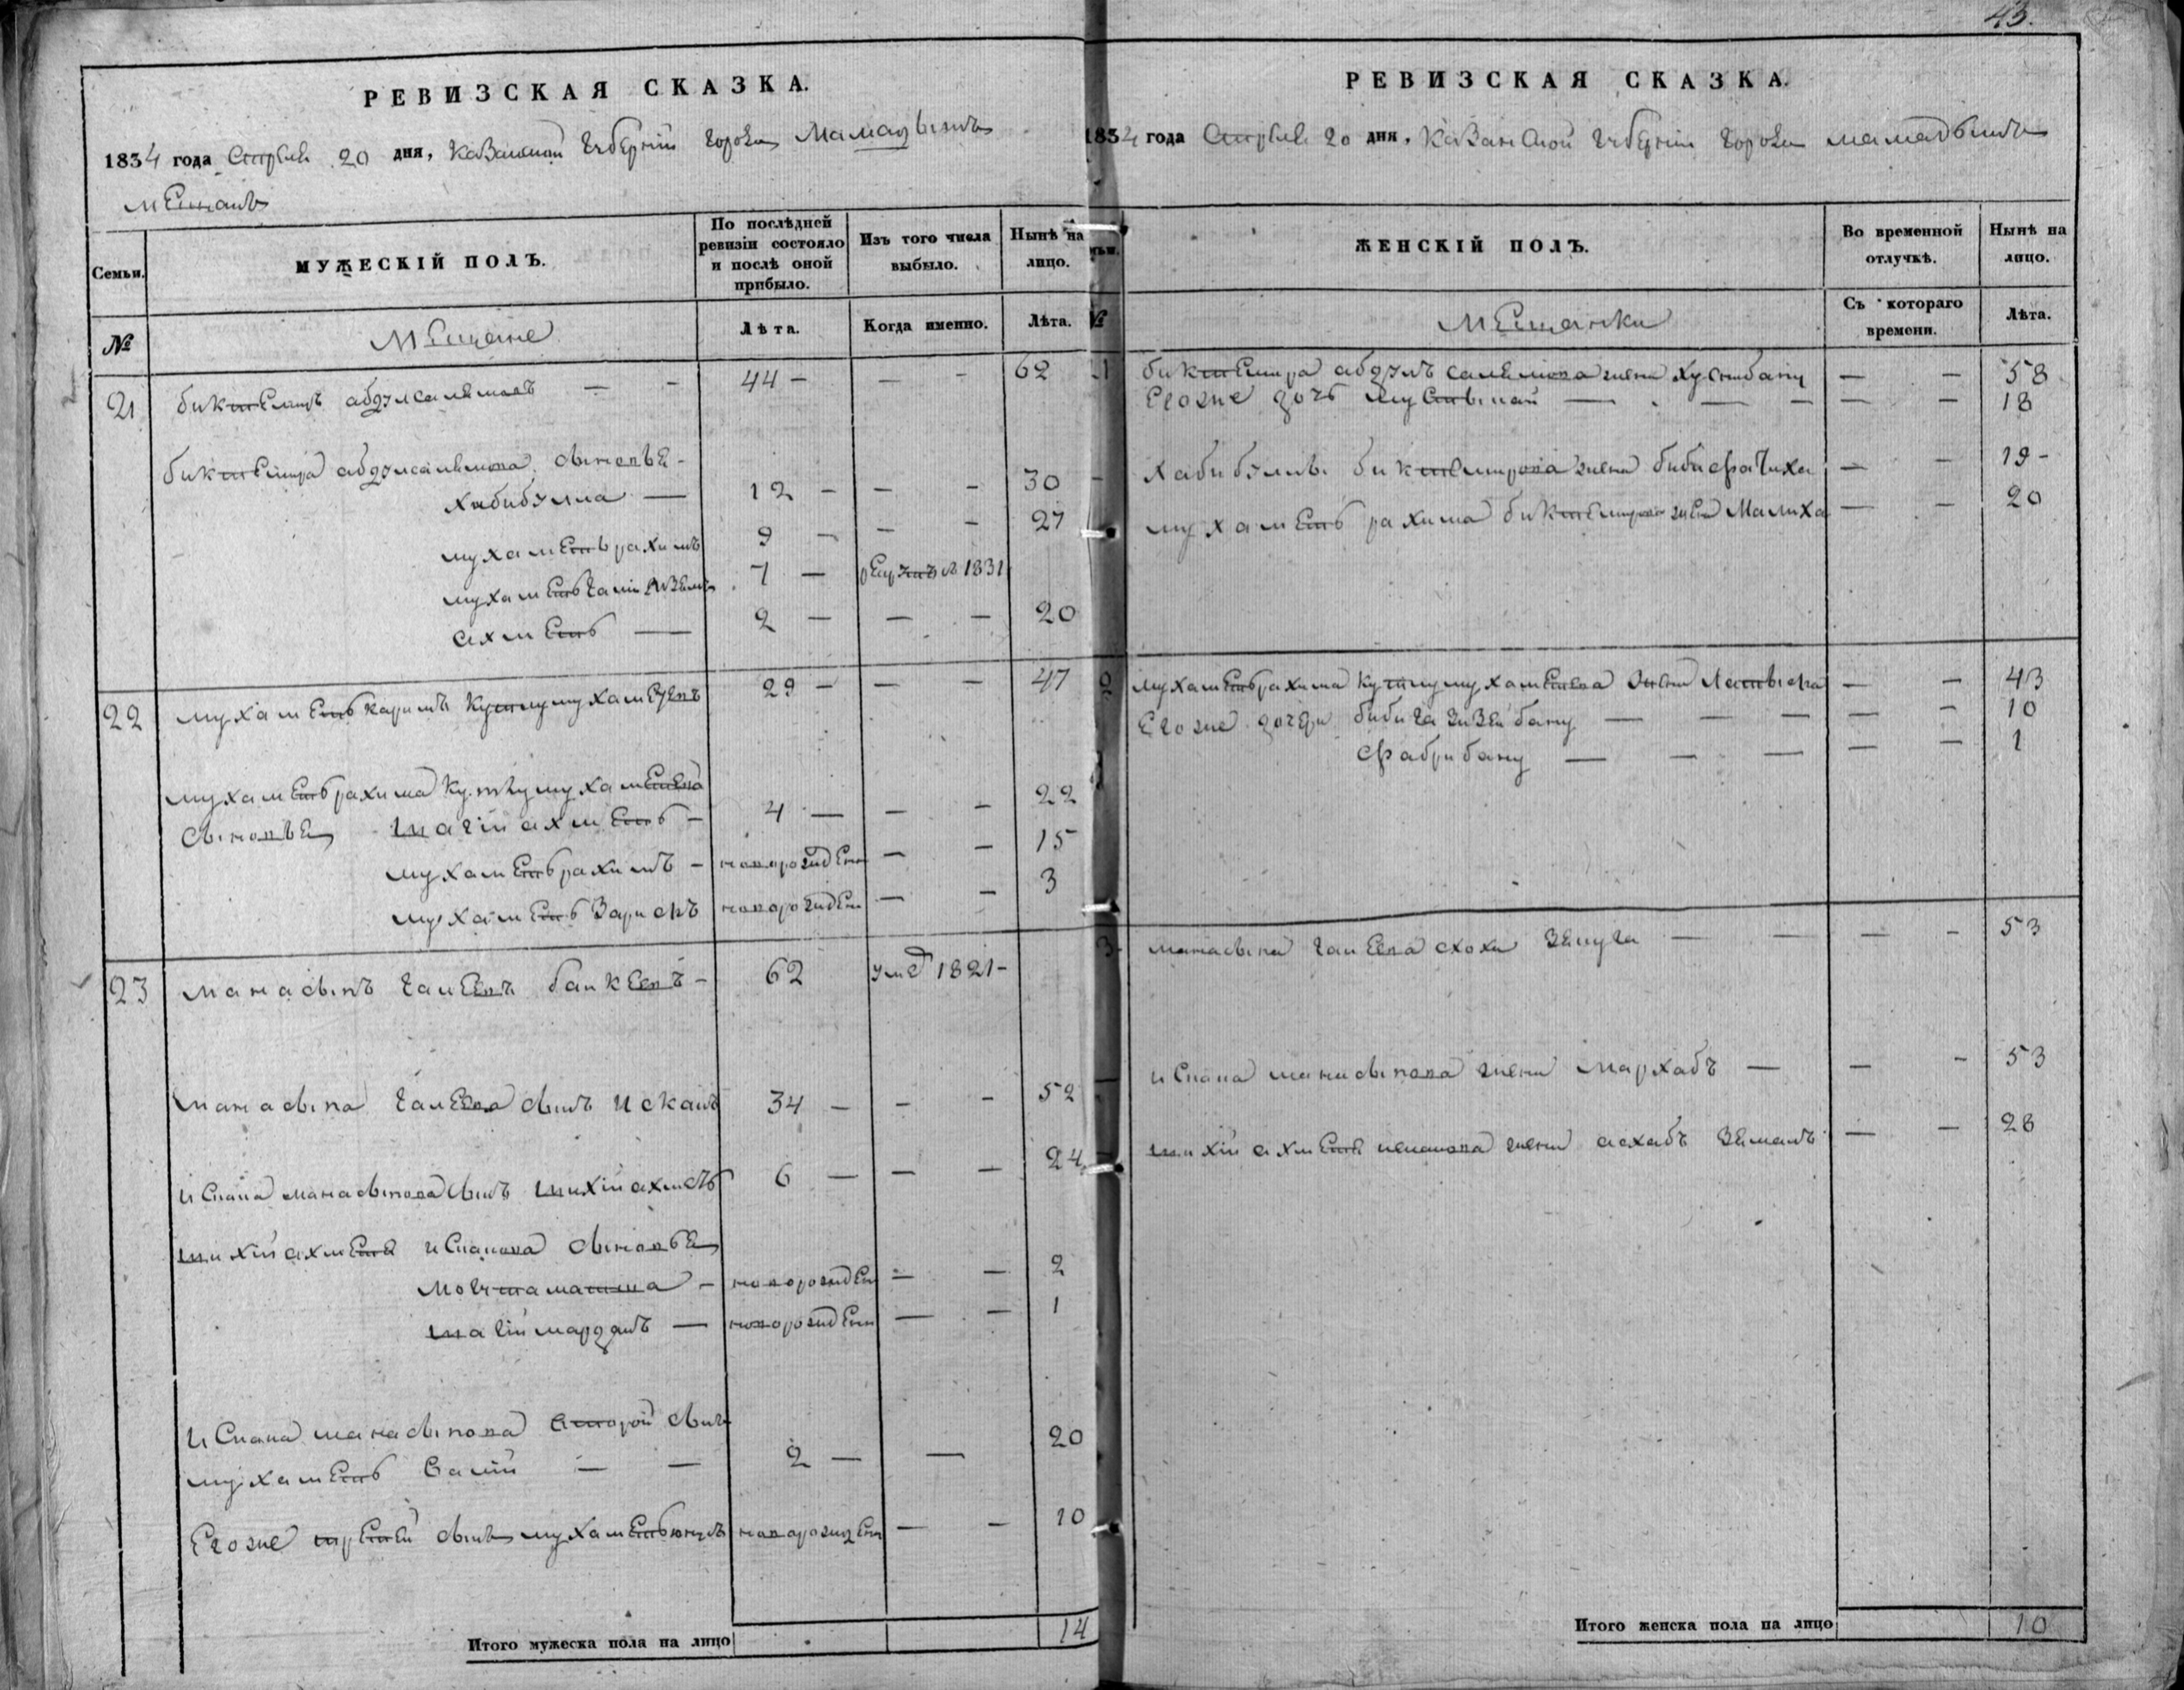 43.
РЕВИЗСКАЯ СКАЗКА.
1834 года Апреля 20 дня, Казанской губернии города Мамадышъ
мещанъ
Семьи.
МУЖЕСКІЙ ПОЛЪ.
По послѣдней ревизіи состояло и послѣ оной прибыло.
Изъ того числа выбыло.
Нынѣ на лицо.
№
Мещане
Лѣта.
Когда именно.
Лѣта.
21 биктемиръ абдулсалямовъ — — 44 — — - 62
биктемира абдулсалямова сыновья -
хабибулла — 12 - — - 30
мухаметьрахимъ 9 - — - 27
7 — 1831
ахметь — 2 — — — 20
22 мухаметькаримъ кутлумухамедевъ 29 - — - 47
мухаметьрахима кутлумухаметева
сыновья шагiй ахметь - 4 — — - 22
мухаметьрахимъ - новорожден — - 15
мухаметь Зарифъ новорожден — - 3
23 манасыпъ галеевъ баикеевъ - 62 уме 1821 -
манасыпа галеева сынъ Искакъ 34 - - - 52
манасыпова сынъ шихiй ахметь 6 — — — 24
шихiй ахметя сыновья
- новорожден — — 2
шагiймарданъ — новорожден — - 1
манасыпова второй сынъ
мухаметь Галiй — — 2 — — 20
Егоже третей сынъ мухаметьюнусъ новорожден — - 10
Итого мужеска пола на лицо 14
РЕВИЗСКАЯ СКАЗКА.
1834 года Апреля 20 дня, Казанской губернiи города мамадышъ
ЖЕНСКІЙ ПОЛЪ.
Во временной отлучкѣ.
Нынѣ на лицо.
№
Мещанки
Съ котораго времени.
Лѣта.
биктемира абдулъ салямова жена хуснибану — - 58
Егоже дочь — — - — - 18
хабибуллы биктемирова жена бибифатиха — - 19 -
мухаметь рахима биктемирова жена Малиха — - 20
2 мухаметьрахима кутлумухаметева жена Латыфа — - 43
Егоже дочери биби газизябану — — — — - 10
фахрибану — — — — - 1
3 манасыпа галеева Зямуга — — — - 53
манасыпова жена Мархабъ — — - 53
шихiй ахметя жена асхабъ Зяманъ — - 28
Итого женска пола на лицо 10